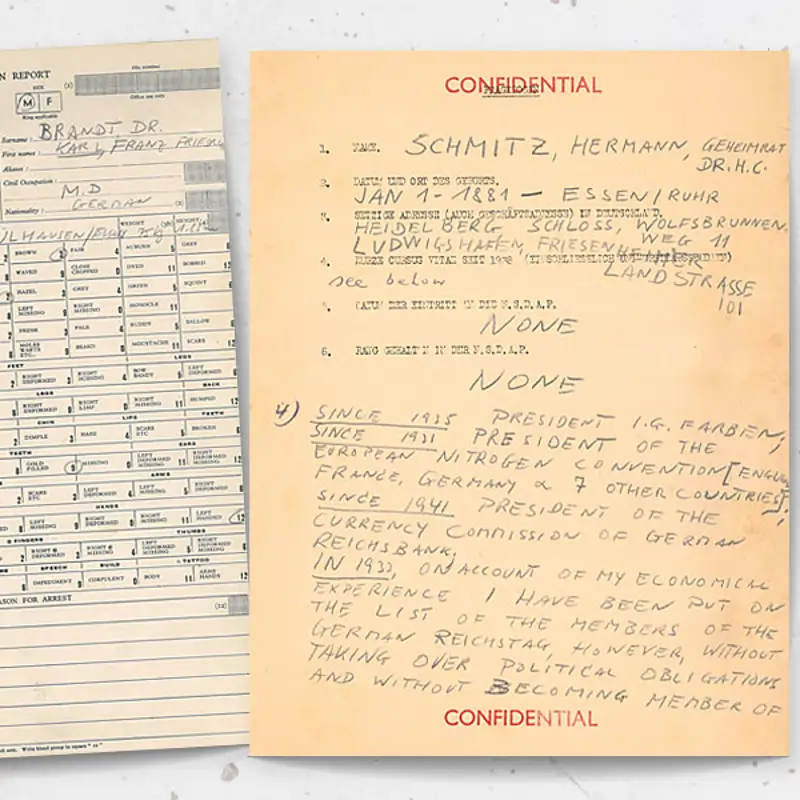 N REPORT
File number
SEX
(2)
M F
Office use only
Ring applicable
Surname: BRANDT, DR.
First names: KARL, FRANZ FRIEDR
Aliases:
Civil Occupation: M.D
Nationality: GERMAN
WEIGHT HEIGHT
BROWN FAIR AUBURN GREY
WAVED CLOSE CROPPED DYED BOBBED
HAZEL GREY GREEN SQUINT
LEFT MISSING RIGHT MISSING MONOCLE
FRESH PALE RUDDY SALLOW
MOLES WARTS ETC. BEARD MOUSTACHE SCARS
FEET LEGS
RIGHT DEFORMED RIGHT MISSING BOW BANDY LEFT DEFORMED
LEGS BACK
RIGHT DEFORMED RIGHT LIMP RIGHT MISSING HUMPED
CHIN LIPS TEETH
DIMPLE HARE SCARS ETC BROKEN
TEETH EARS
GOLD FILLED MISSING LEFT DEFORMED RIGHT MISSING
ARMS
SCARS ETC LEFT DEFORMED LEFT MISSING RIGHT DEFORMED
HANDS
LEFT MISSING RIGHT DEFORMED RIGHT MISSING LEFT HANDED
FINGERS THUMBS
RIGHT DEFORMED RIGHT MISSING LEFT DEFORMED RIGHT MISSING
SPEECH BUILD TATTOO
IMPEDIMENT CORPULENT BODY ARMS HANDS
ASON FOR ARREST
(22)
CONFIDENTIAL
1. NAME. SCHMITZ, HERMANN, GEHEIMRAT
DR. H.C.
2. DATUM UND ORT DES GEBURTS.
JAN 1 - 1881 - ESSEN/RUHR
3. JETZIGE ADRESSE (AUCH GESCHÄFTSADRESSE) IN DEUTSCHLAND.
HEIDELBERG SCHLOSS, WOLFSBRUNNEN.
WEG 11
LUDWIGSHAFEN, FRIESENHEIMER
LANDSTRASSE
101
4. KURZE CURSUS VITAE SEIT
see below
5. DATUM DER EINTRITT IN DIE N.S.D.A.P.
NONE
6. RANG GEHALTEN IN DER N.S.D.A.P.
NONE
4) SINCE 1935 PRESIDENT I.G. FARBEN;
SINCE 1931 PRESIDENT OF THE
EUROPEAN NITROGEN CONVENTION [ENGLA
FRANCE, GERMANY & 7 OTHER COUNTRIES];
SINCE 1941 PRESIDENT OF THE
CURRENCY COMMISSION OF GERMAN
REICHSBANK;
IN 1933, ON ACCOUNT OF MY ECONOMICAL
EXPERIENCE I HAVE BEEN PUT ON
THE LIST OF THE MEMBERS OF THE
GERMAN REICHSTAG, HOWEVER, WITHOUT
TAKING OVER POLITICAL OBLIGATIONS
AND WITHOUT BECOMING MEMBER OF
CONFIDENTIAL